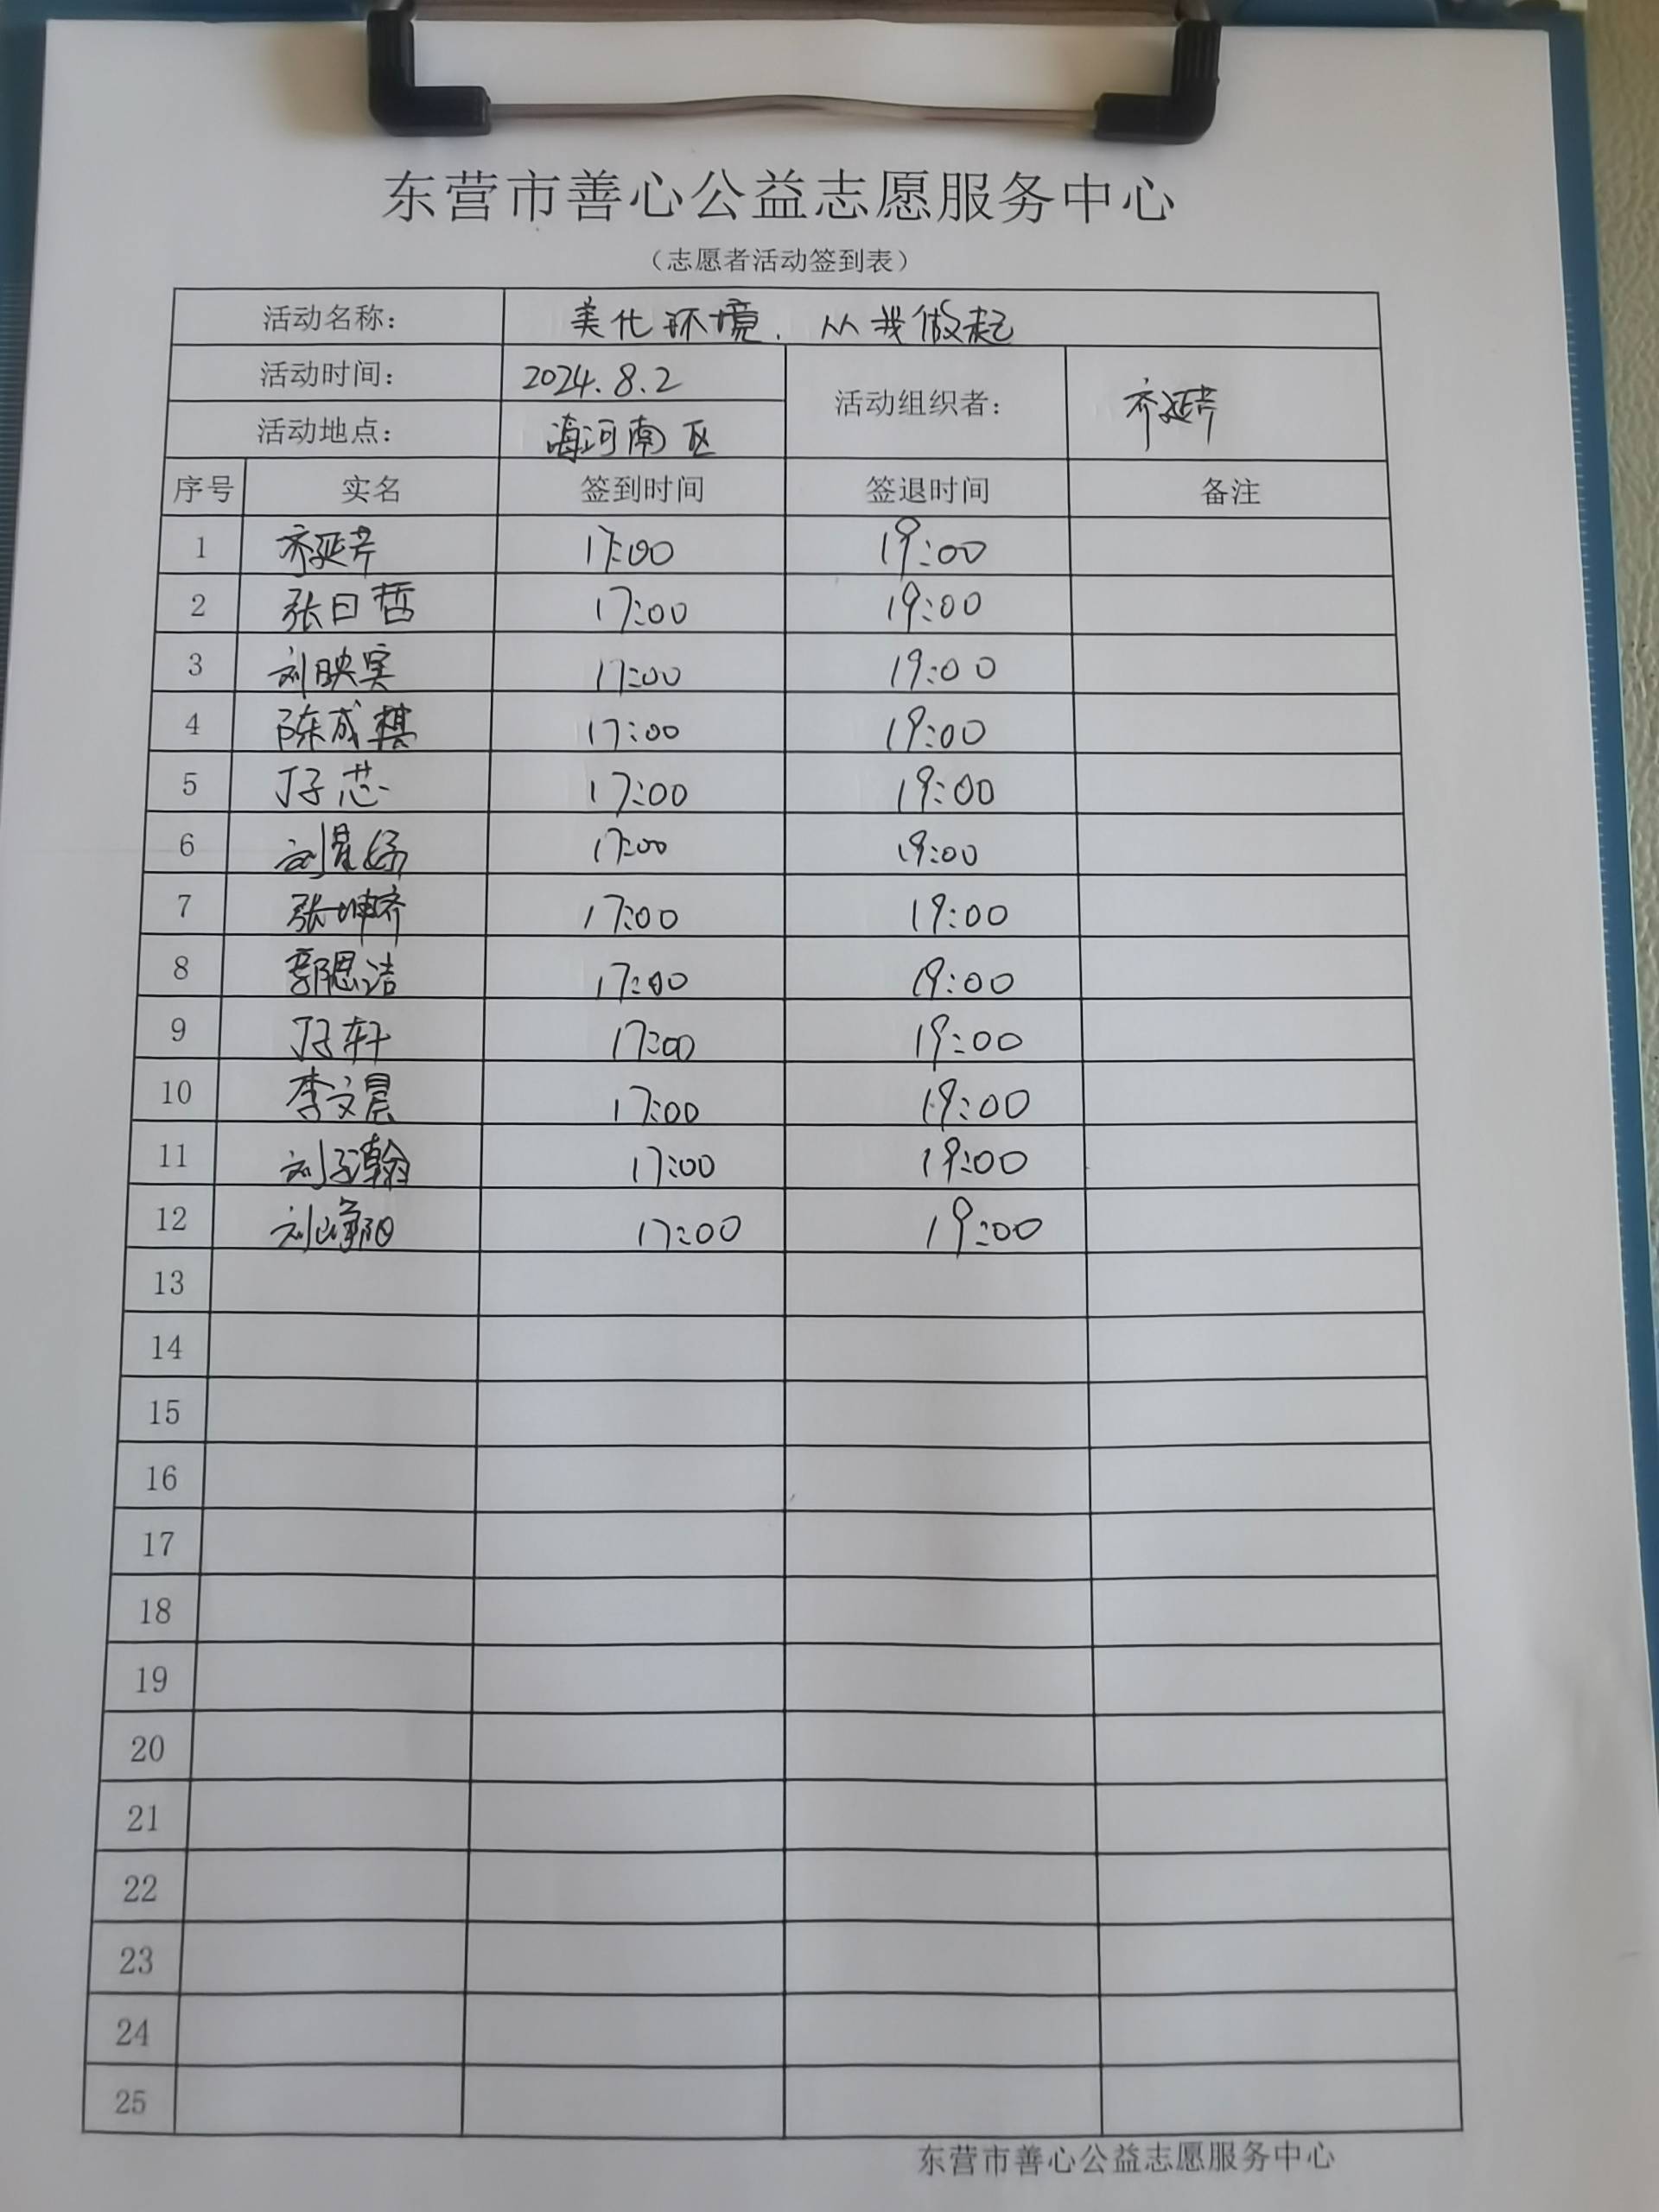 东营市善心公益志愿服务中心
（志愿者活动签到表）
活动名称： 美化环境. 从我做起
活动时间： 2024.8.2 活动组织者： 齐延芹
活动地点： 海河南区
序号 实名 签到时间 签退时间 备注
1 齐延芹 17:00 19:00
2 张日哲 17:00 19:00
3 刘映实 17:00 19:00
4 陈成棋 17:00 19:00
5 丁子芯 17:00 19:00
6 17:00 19:00
7 张坤齐 17:00 19:00
8 郭思洁 17:00 19:00
9 丁子轩 17:00 19:00
10 李文晨 17:00 19:00
11 刘子瀚 17:00 19:00
12 17:00 19:00
13
14
15
16
17
18
19
20
21
22
23
24
25
东营市善心公益志愿服务中心